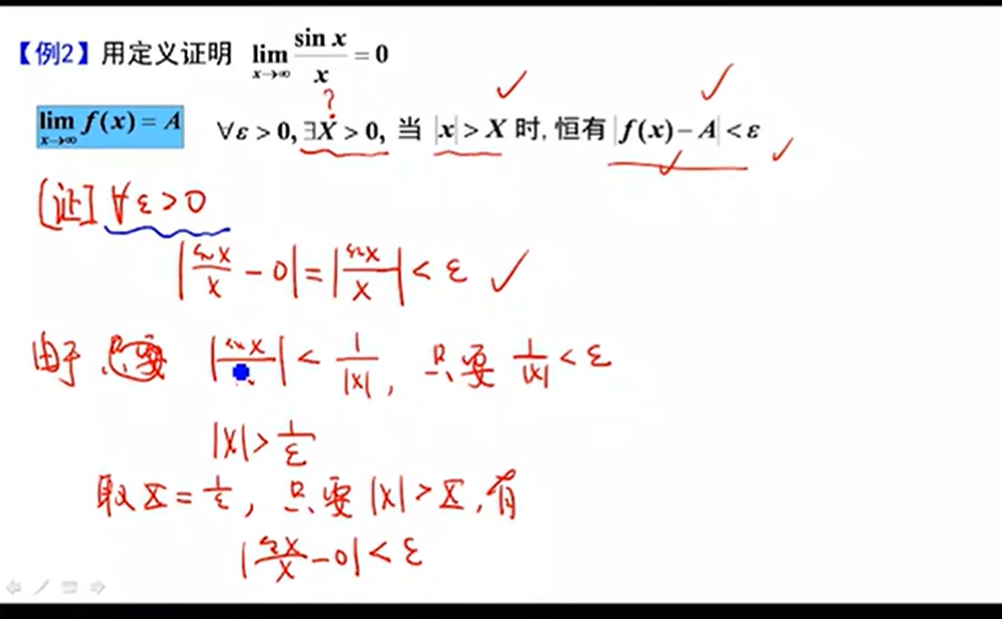 【例2】用定义证明 lim x→∞ sin x / x = 0
lim x→∞ f(x) = A ∀ε > 0, ∃X > 0, 当 |x| > X 时, 恒有 |f(x) − A| < ε
?
[证] ∀ε > 0
|sin x / x − 0| = |sin x / x| < ε
由于 只要 |sin x / x| < 1/|x|, 只要 1/|x| < ε
|x| > 1/ε
取 X = 1/ε, 只要 |x| > X, 有
|sin x / x − 0| < ε